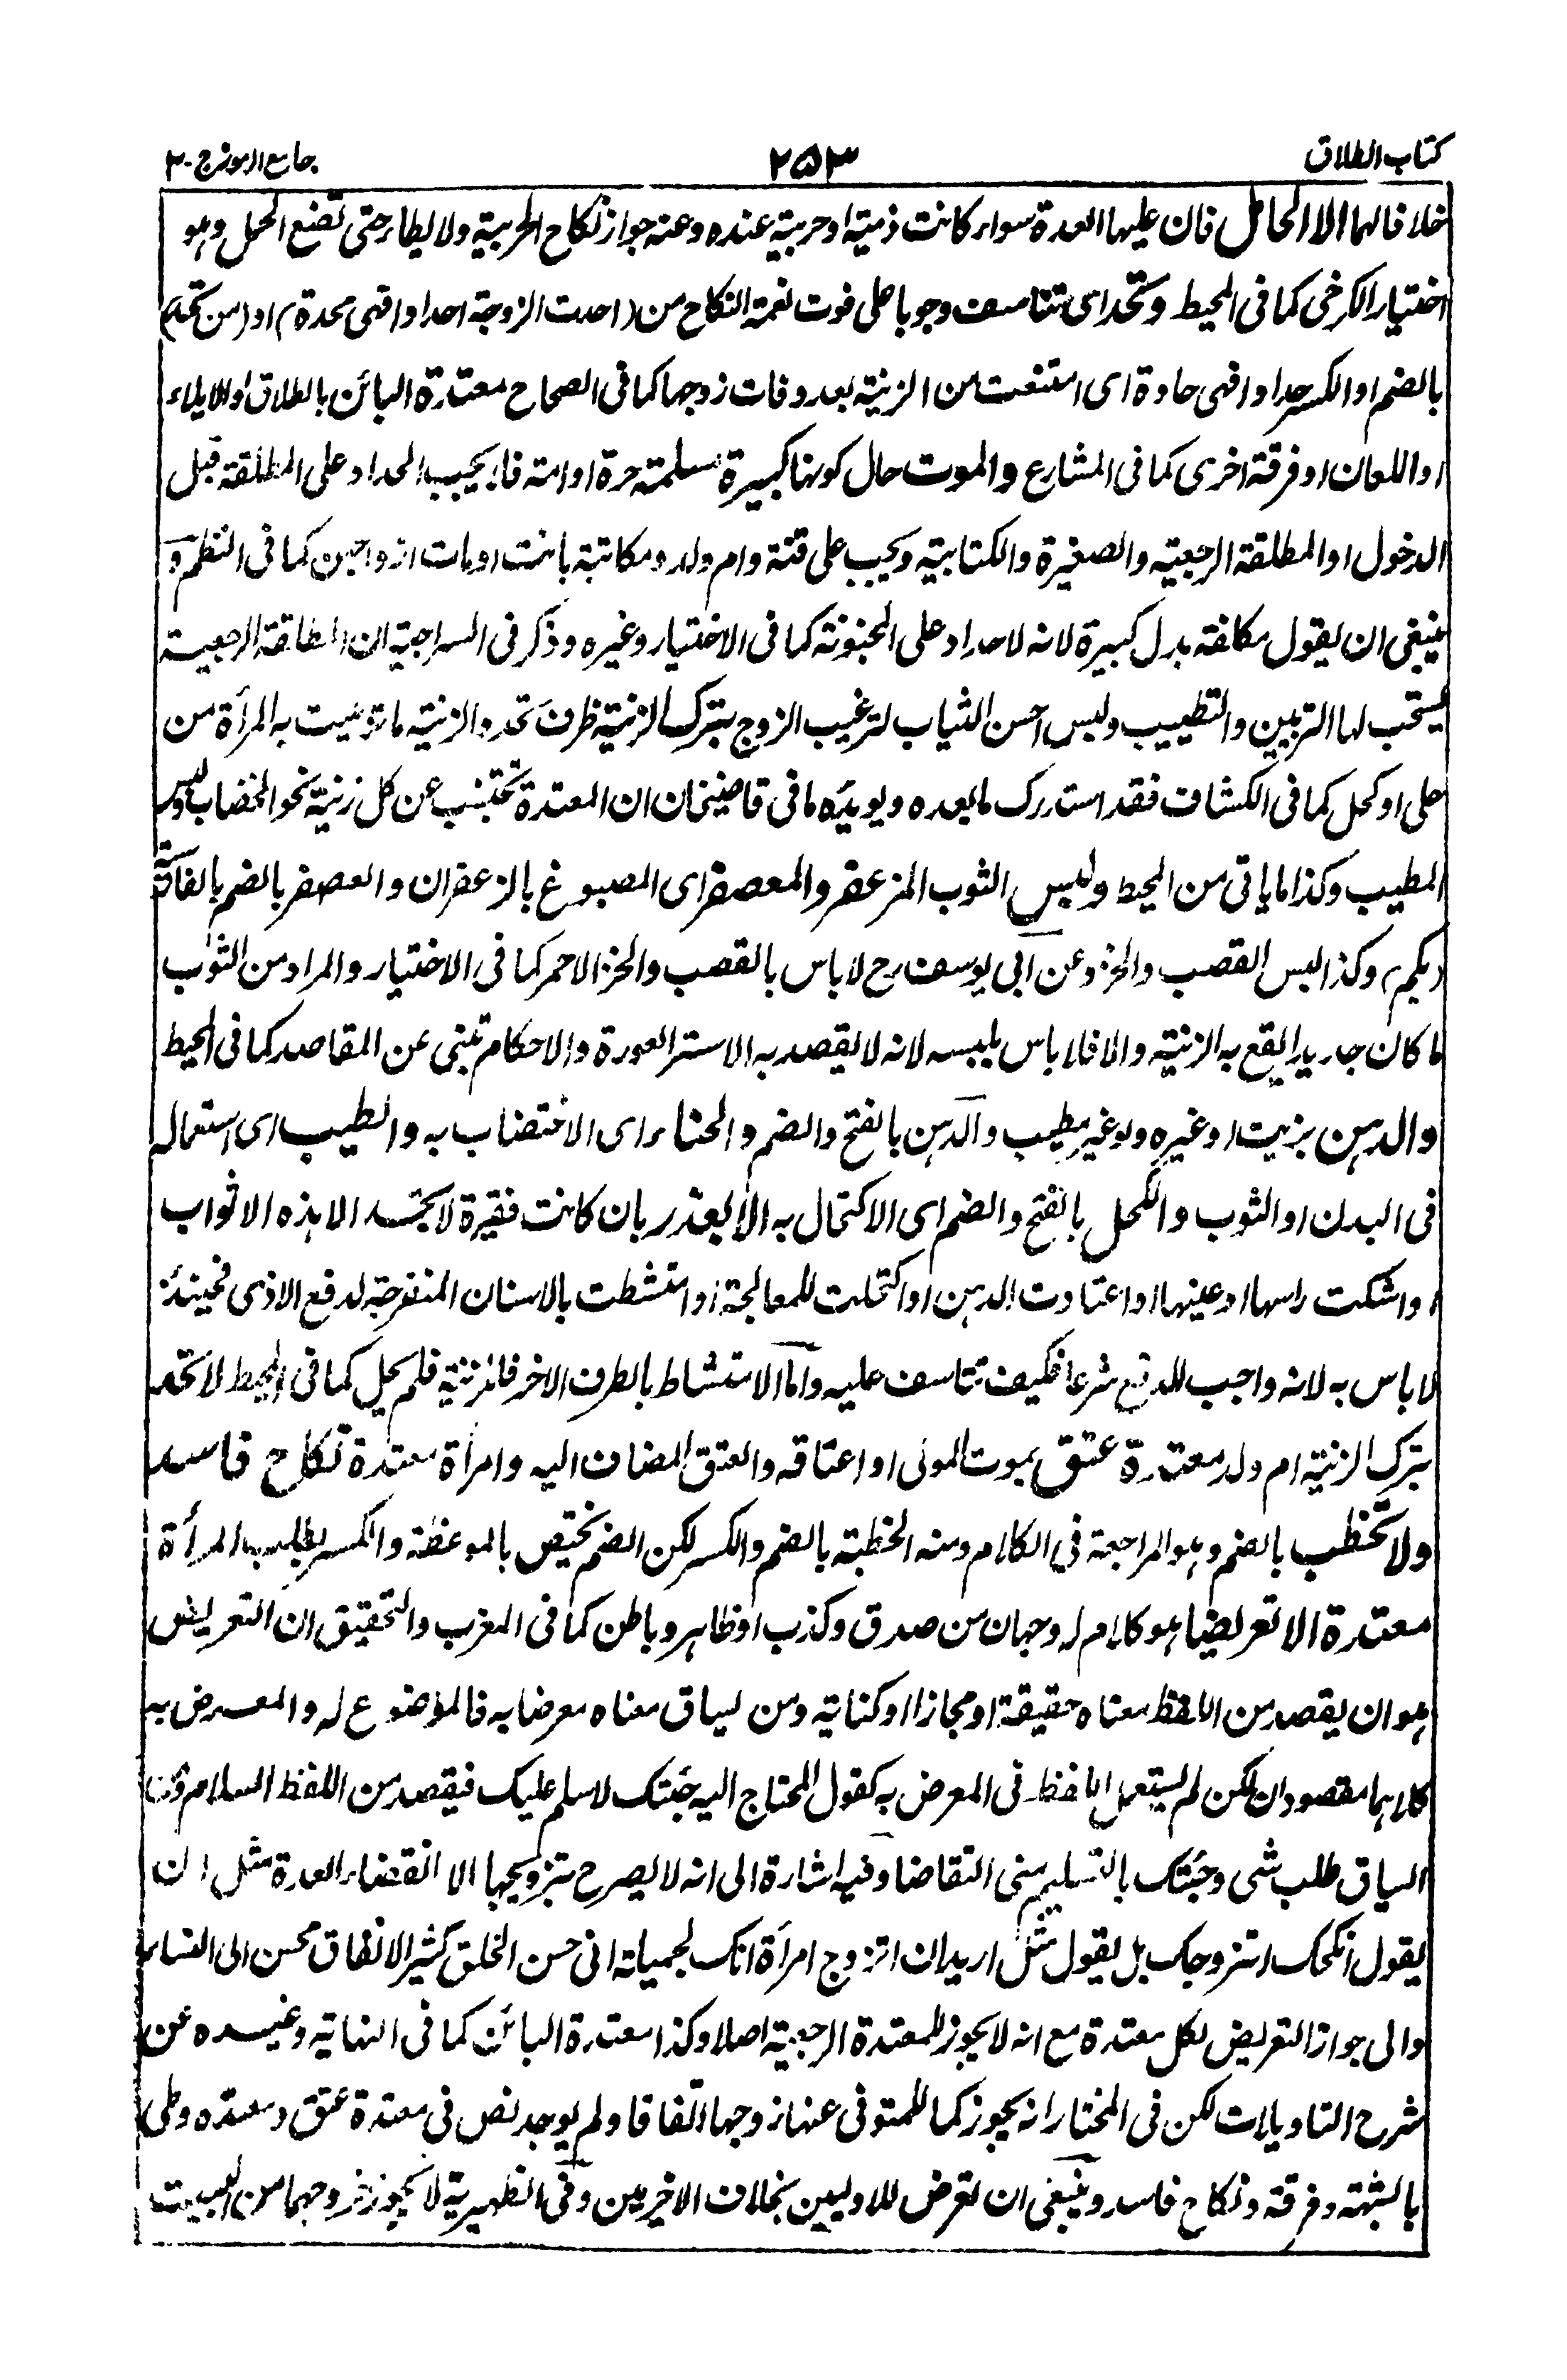 كتاب الطلاق
٢٥٣
جامع الرموز ج-٢
خلافا لهما الا الحامل فان عليها العدة سواء كانت ذمية او حربية عنده وعنه جواز نكاح الحربية ولا يطأ حتى تضع الحمل وهو
اختيار الكرخي كما في المحيط وتحد اى تتاسف وجوبا على فوت نعمة النكاح من (احدت الزوجة احدادا فهى محدة) او (من تحد)
بالضم او الكسر حدادا فهى حادة اى امتنعت من الزينة بعد وفات زوجها كما في الصحاح معتدة البائن بالطلاق او الايلاء
او اللعان او فرقة اخرى كما فى المشارع والموت حال كونها كبيرة مسلمة حرة او امة فلا يجب الحداد على المطلقة قبل
الدخول او المطلقة الرجعية والصغيرة والكتابية ويجب على قنة وام ولد ومكاتبة بانت او مات ازواجهن كما فى النظم و
ينبغى ان يقول مكلفة بدل كبيرة لانه لا حداد على المجنونة كما فى الاختيار وغيره وذكر فى السراجية ان المطلقة الرجعية
يستحب لها التزيين والتطييب ولبس احسن الثياب لترغيب الزوج بترك الزينة ظرف تحد والزينة ما تزينت به المرأة من
حلى او كحل كما فى الكشاف فقد استدرك ما بعده ويؤيده ما فى قاضيخان ان المعتدة تجتنب عن كل زينة نحو الخضاب ولبس
المطيب وكذا ما ياتى من المحيط ولبس الثوب المزعفر والمعصفر اى المصبوغ بالزعفران والعصفر بالضم بالفارسية
(بكم) وكذا لبس القصب والخز وعن ابى يوسف رح لا باس بالقصب والخز الاحمر كما فى الاختيار والمراد من الثوب
ما كان جديدا يقع به الزينة والا فلا باس بلبسه لانه لا يقصد به الا ستر العورة والاحكام تبنى عن المقاصد كما فى المحيط
والدهن بزيت او غيره ولو غير مطيب والدهن بالفتح والضم والحناء اى الاختضاب به والطيب اى استعماله
فى البدن او الثوب والكحل بالفتح والضم اى الاكتحال به الا بعذر بان كانت فقيرة لا تجد الا هذه الاثواب
او اشتكت راسها او عينها او اعتادت الدهن او اكتحلت للمعالجة او امتشطت بالاسنان المنفرجة لدفع الاذى فحينئذ
لا باس به لانه واجب للدفع شرعا فكيف تتاسف عليه واما الامتشاط بالطرف الاخر فللزينة فلم يحل كما فى المحيط لا تحد
بترك الزينة ام ولد معتدة عتق بموت المولى او اعتاقه والعتق المضاف اليه وامرأة معتدة نكاح فاسد
ولا تخطب بالضم وهو المراجعة فى الكلام ومنه الخطبة بالضم والكسر لكن الضم يختص بالموعظة والكسر بطلب المرأة
معتدة الا تعريضا هو كلام له وجهان من صدق وكذب او ظاهر وباطن كما فى المغرب والتحقيق ان التعريض
هو ان يقصد من اللفظ معناه حقيقة او مجازا او كناية ومن لسياق معناه معرضا به فالموضوع له والمعرض به
كلاهما مقصودان لكن لم يستعمل اللفظ فى المعرض به كقول المحتاج اليه جئتك لاسلم عليك فيقصد من اللفظ السلام ومن
السياق طلب شى وجئتك بالتسليم معنى التقاضا وفيه اشارة الى انه لا يصرح بتزويجها الا انقضاء العدة مثل ان
يقول انكحك اتزوجك بل يقول مثل اريد ان اتزوج امرأة انك لجميلة انى حسن الخلق كثير الانفاق محسن الى النساء
والى جواز التعريض لكل معتدة مع انه لا يجوز للمعتدة الرجعية اصلا وكذا معتدة البائن كما فى النهاية وغيره عن
شرح التاويلات لكن فى المختار انه يجوز كما للمتوفى عنها زوجها اتفاقا ولم يوجد نص فى معتدة عتق ومعتدة وطى
بالشبهة وفرقة ونكاح فاسد وينبغى ان تعرض للاوليين بخلاف الاخيرين وفى الظهيرية لا يجوز خروجهما من البيت